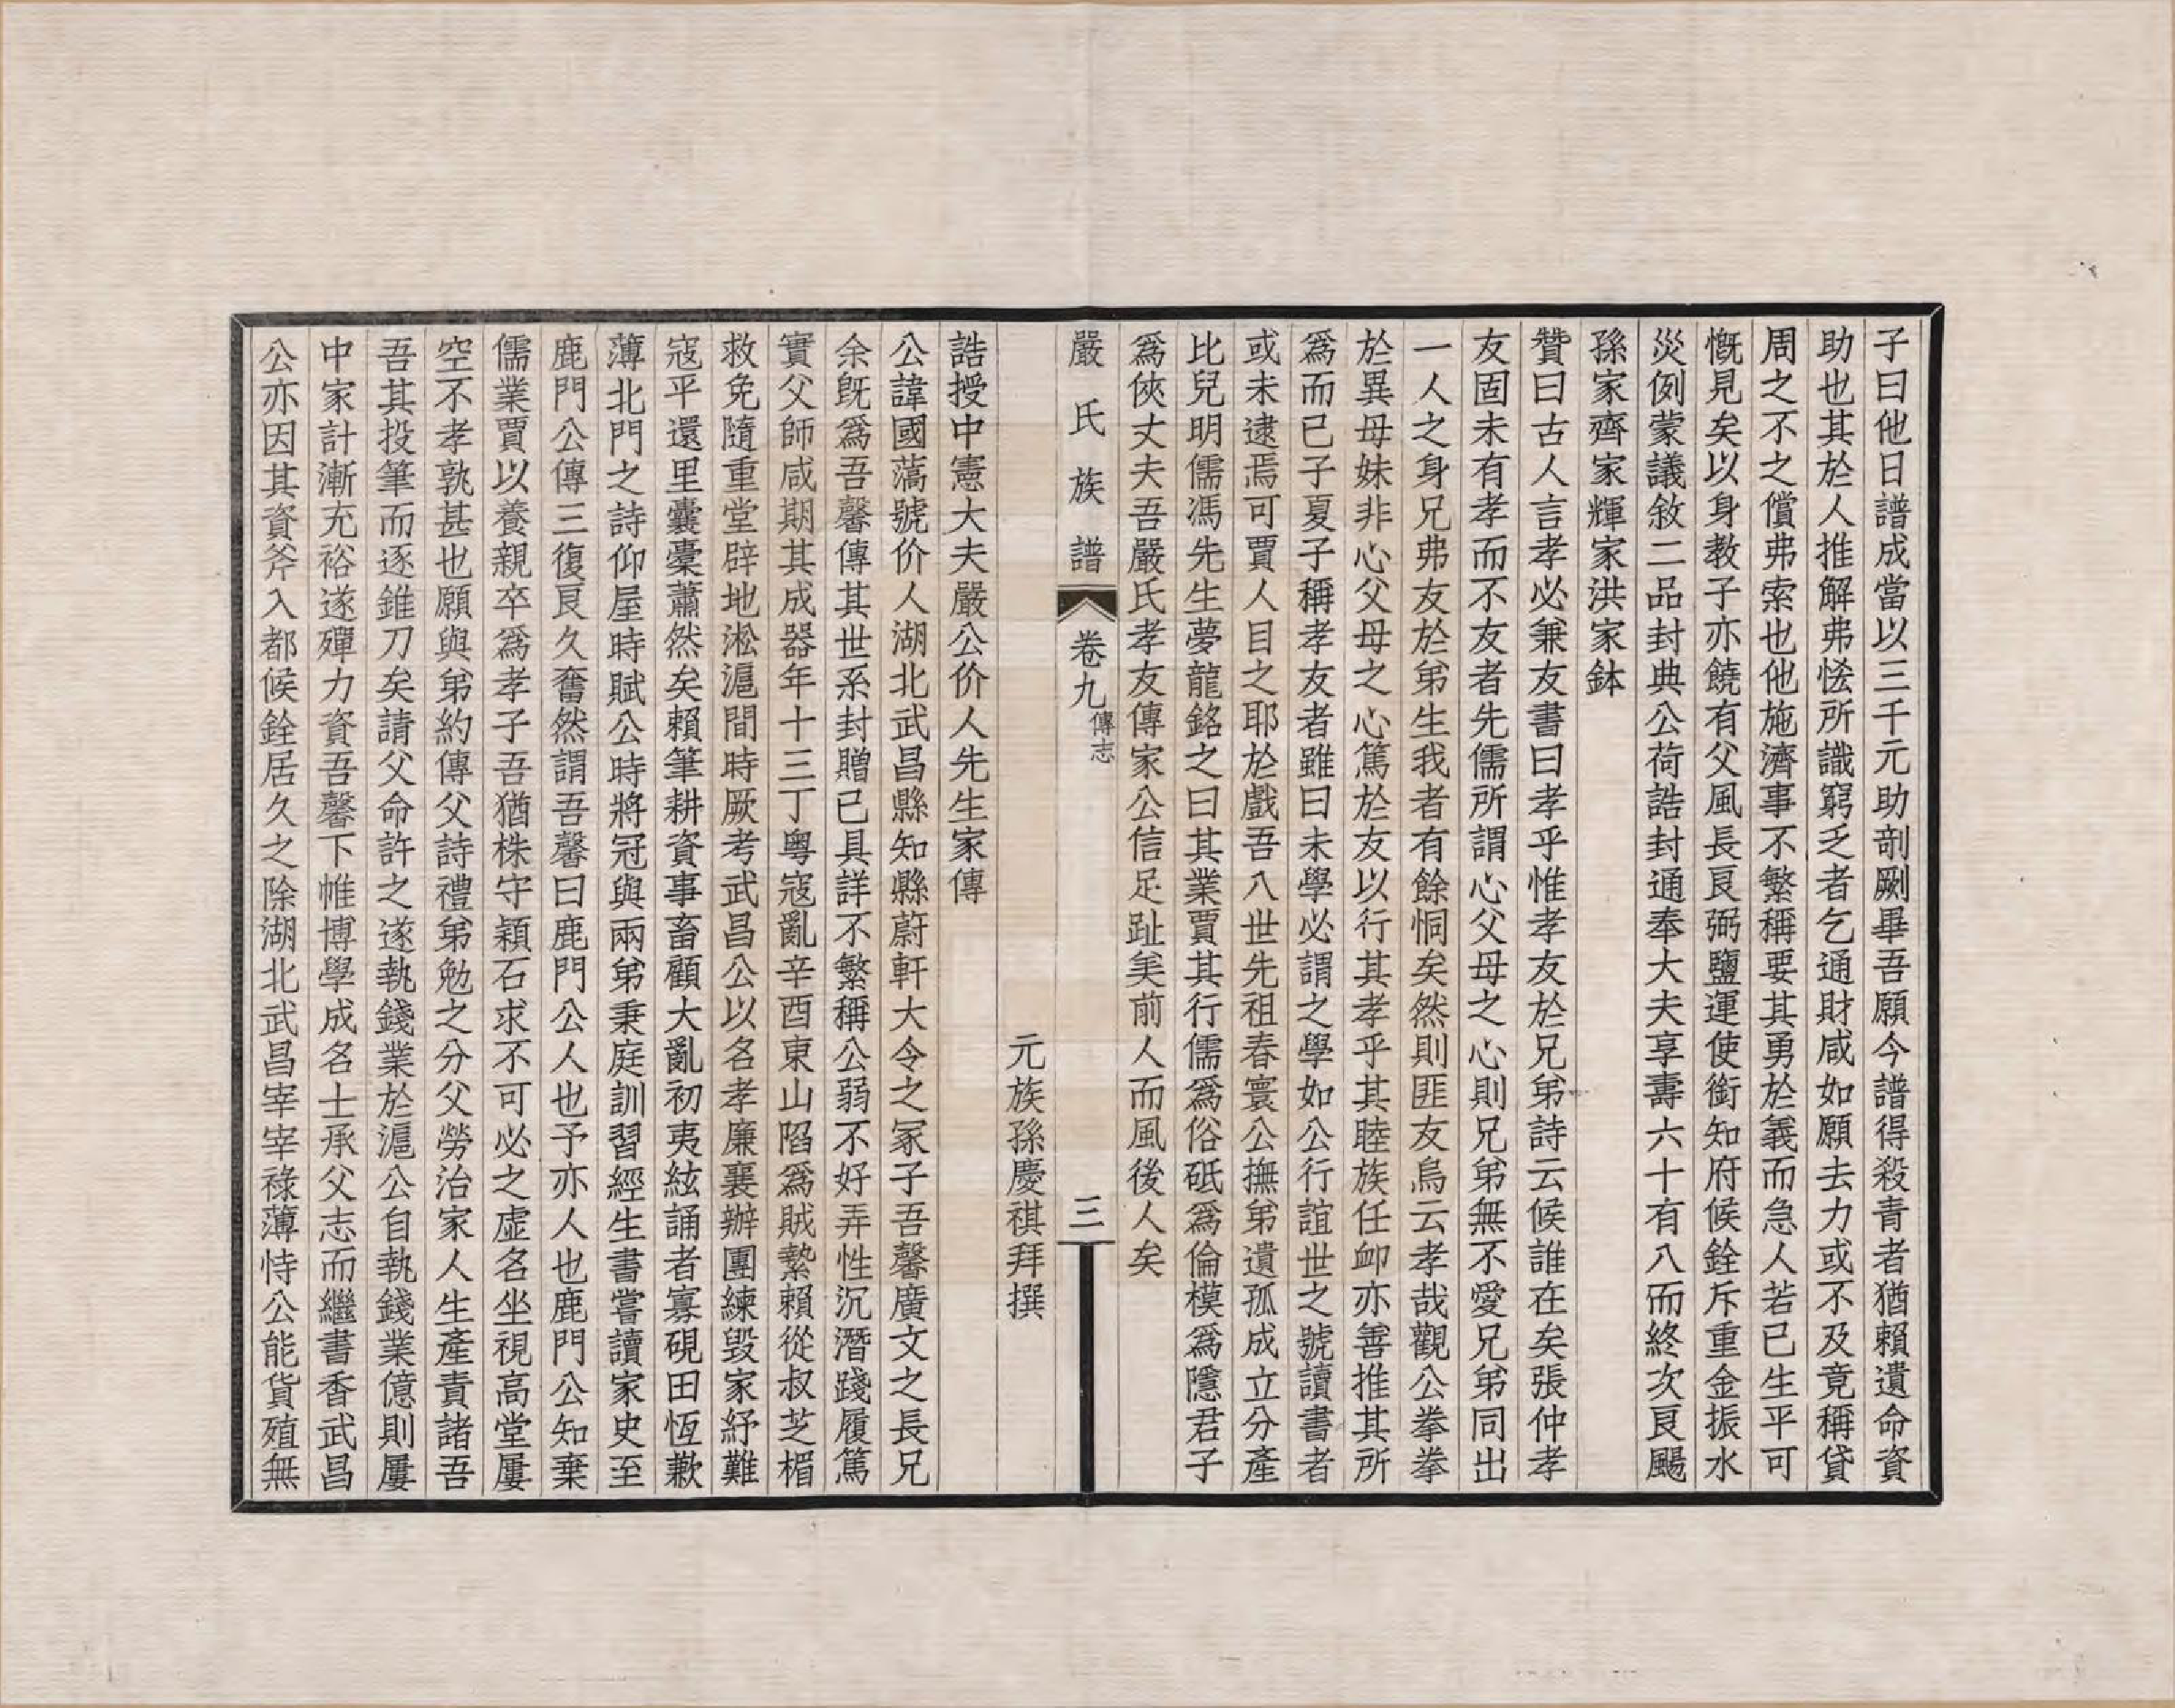 子曰他日譜成當以三千元助剞劂畢吾願今譜得殺青者猶賴遺命資
助也其於人推解弗恡所識窮乏者乞通財咸如願去力或不及竟稱貸
周之不之償弗索也他施濟事不繁稱要其勇於義而急人若己生平可
慨見矣以身教子亦饒有父風長艮弼鹽運使銜知府候銓斥重金振水
災例蒙議敘二品封典公荷誥封通奉大夫享壽六十有八而終次艮颺
孫家齊家輝家洪家鉢
贊曰古人言孝必兼友書曰孝乎惟孝友於兄弟詩云候誰在矣張仲孝
友固未有孝而不友者先儒所謂心父母之心則兄弟無不愛兄弟同出
一人之身兄弗友於弟生我者有餘恫矣然則匪友烏云孝哉觀公拳拳
於異母妹非心父母之心篤於友以行其孝乎其睦族任卹亦善推其所
為而已子夏子稱孝友者雖曰未學必謂之學如公行誼世之號讀書者
或未逮焉可賈人目之耶於戲吾八世先祖春寰公撫弟遺孤成立分產
比兒明儒馮先生夢龍銘之曰其業賈其行儒為俗砥為倫模為隱君子
為俠丈夫吾嚴氏孝友傳家公信足趾美前人而風後人矣
嚴氏族譜 卷九 傳志 三
元族孫慶祺拜撰
誥授中憲大夫嚴公价人先生家傳
公諱國藹號价人湖北武昌縣知縣蔚軒大令之冢子吾馨廣文之長兄
余既為吾馨傳其世系封贈已具詳不繁稱公弱不好弄性沉潛踐履篤
實父師咸期其成器年十三丁粵寇亂辛酉東山陷為賊縶賴從叔芝楣
救免隨重堂辟地淞滬間時厥考武昌公以名孝廉襄辦團練毀家紓難
寇平還里囊橐蕭然矣賴筆耕資事畜顧大亂初夷絃誦者寡硯田恆歉
薄北門之詩仰屋時賦公時將冠與兩弟秉庭訓習經生書嘗讀家史至
鹿門公傳三復艮久奮然謂吾馨曰鹿門公人也予亦人也鹿門公知棄
儒業賈以養親卒為孝子吾猶株守穎石求不可必之虛名坐視高堂屢
空不孝孰甚也願與弟約傳父詩禮弟勉之分父勞治家人生產責諸吾
吾其投筆而逐錐刀矣請父命許之遂執錢業於滬公自執錢業億則屢
中家計漸充裕遂殫力資吾馨下帷博學成名士承父志而繼書香武昌
公亦因其資斧入都候銓居久之除湖北武昌宰宰祿薄恃公能貨殖無